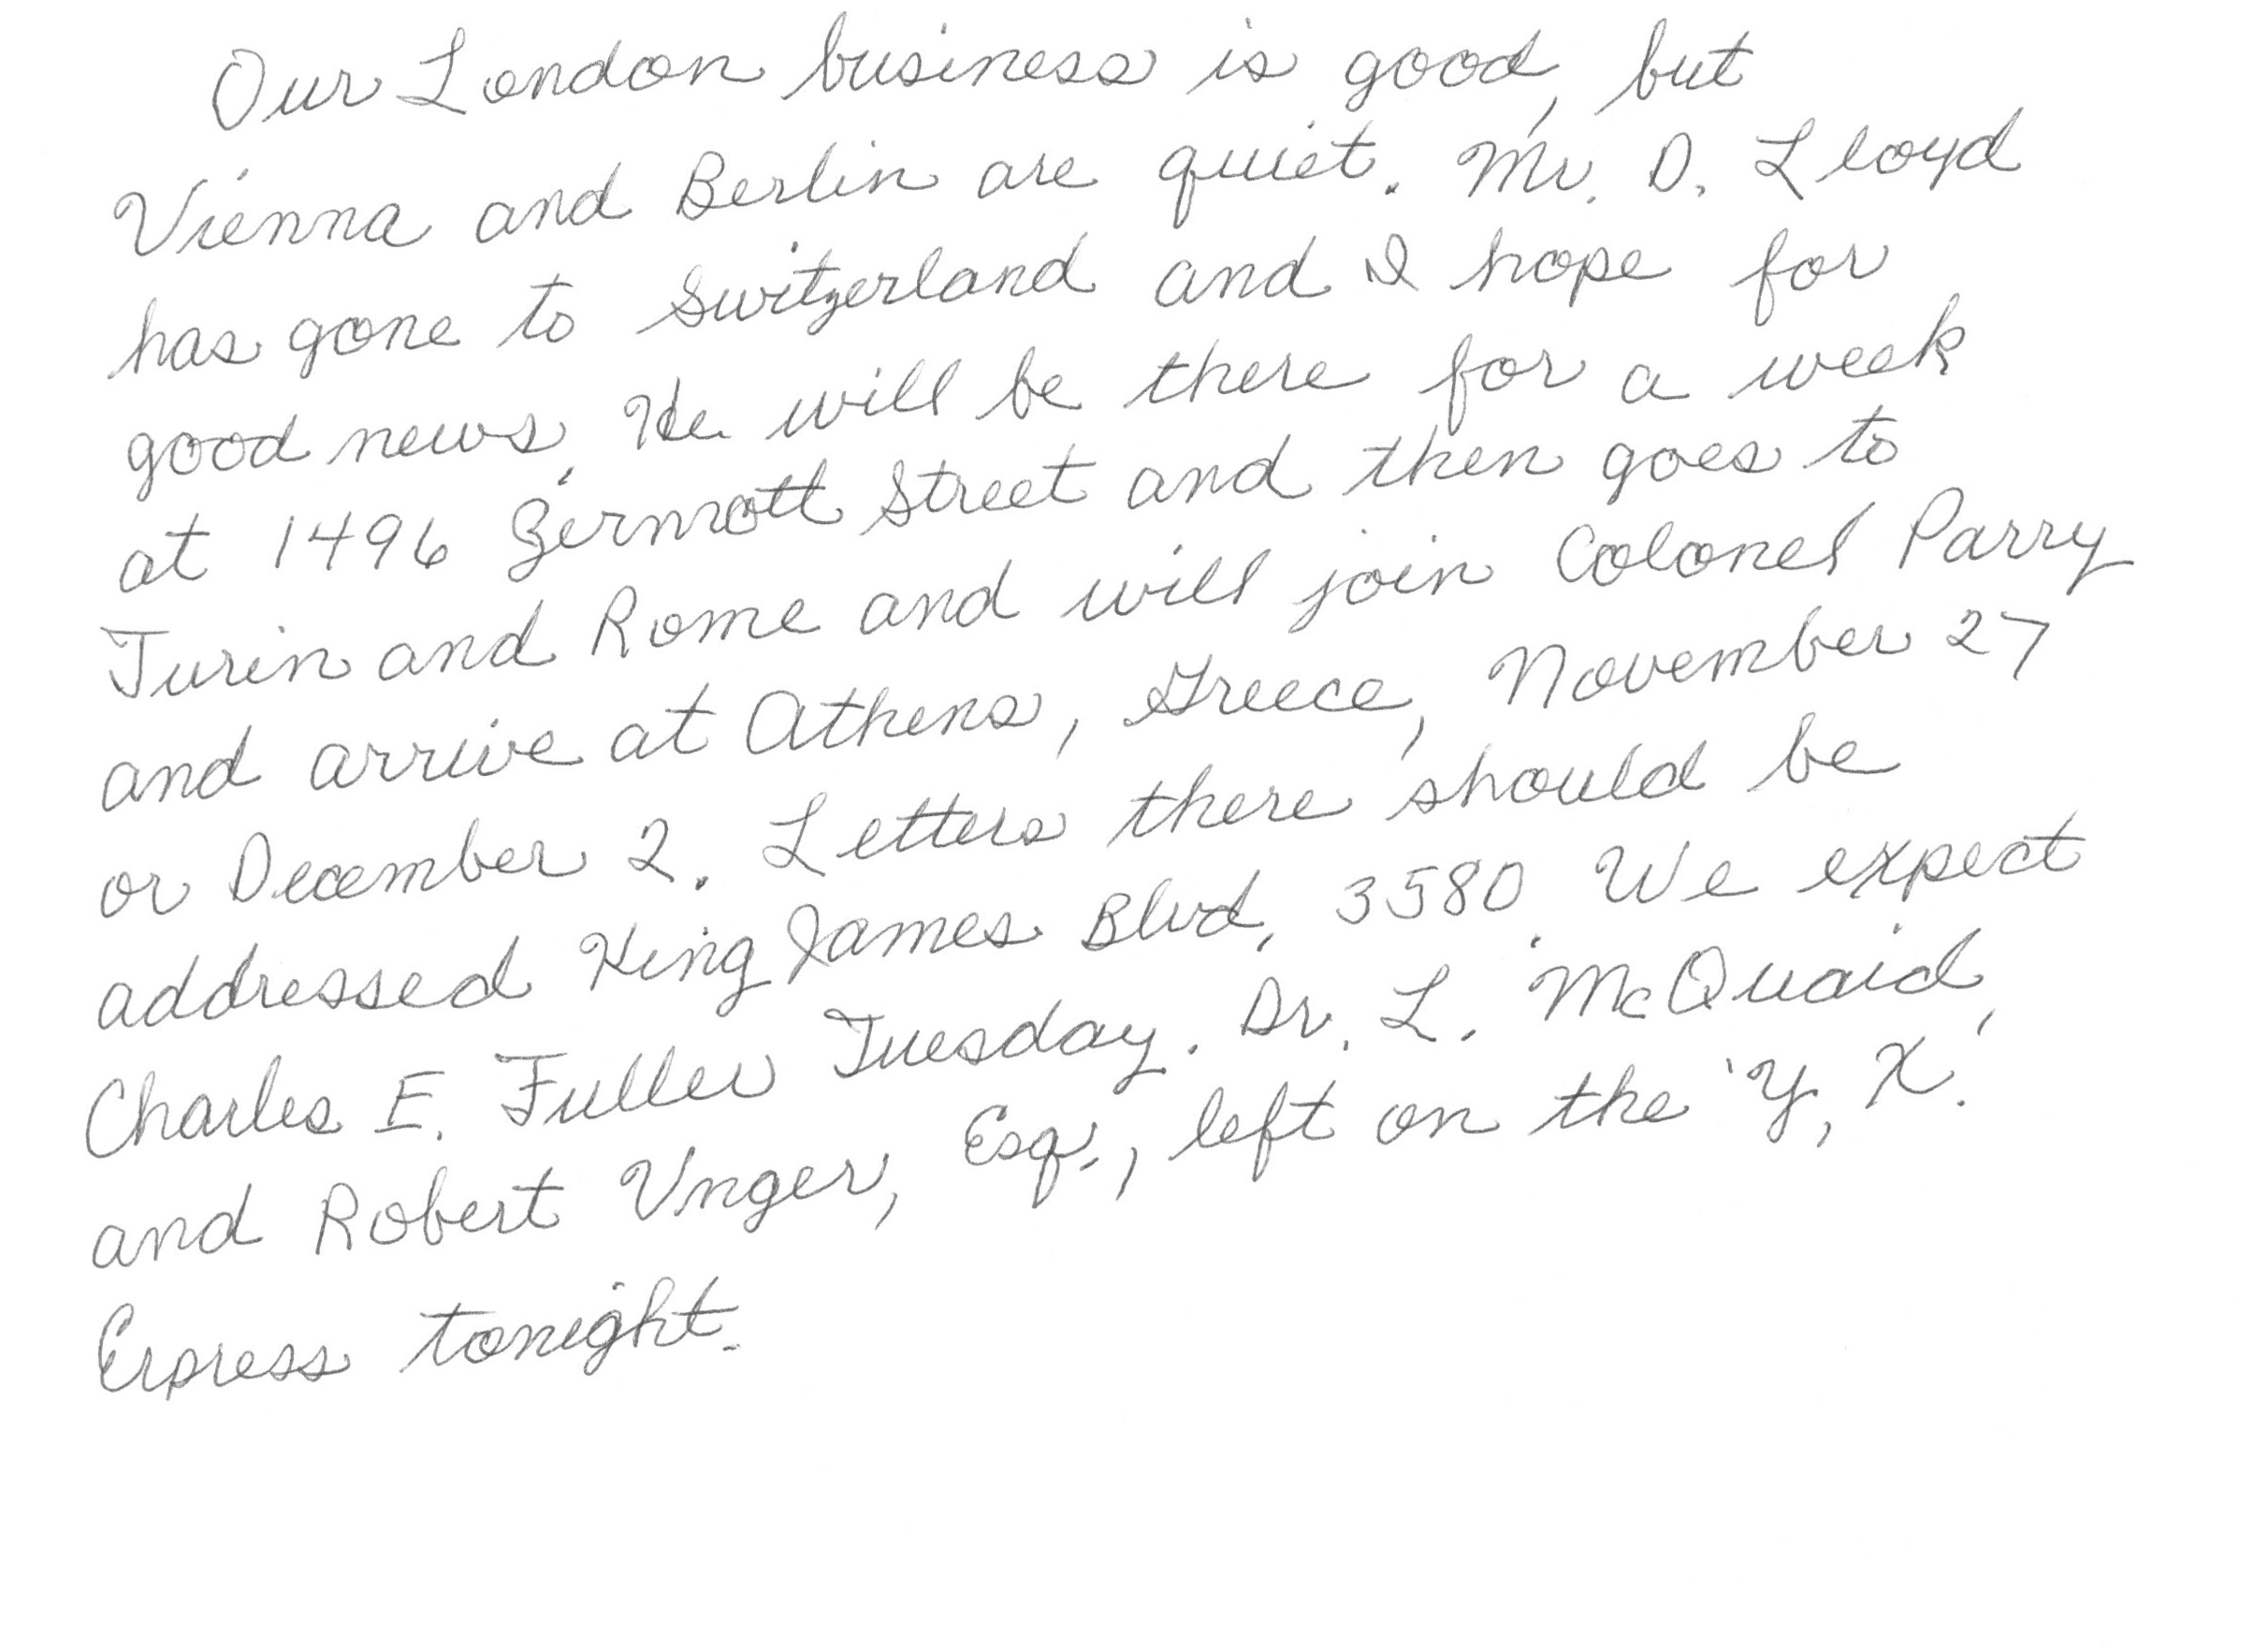 Our London business is good, but
Vienna and Berlin are quiet. Mr. D. Lloyd
has gone to Switzerland and I hope for
good news. He will be there for a week
at 1496 Zermott Street and then goes to
Turin and Rome and will join Colonel Parry
and arrive at Athens, Greece, November 27
or December 2. Letters there should be
addressed King James Blvd, 3580. We expect
Charles E. Fuller Tuesday. Dr. L. McQuaid,
and Robert Unger, Esq., left on the 'Y. X.'
Express tonight.